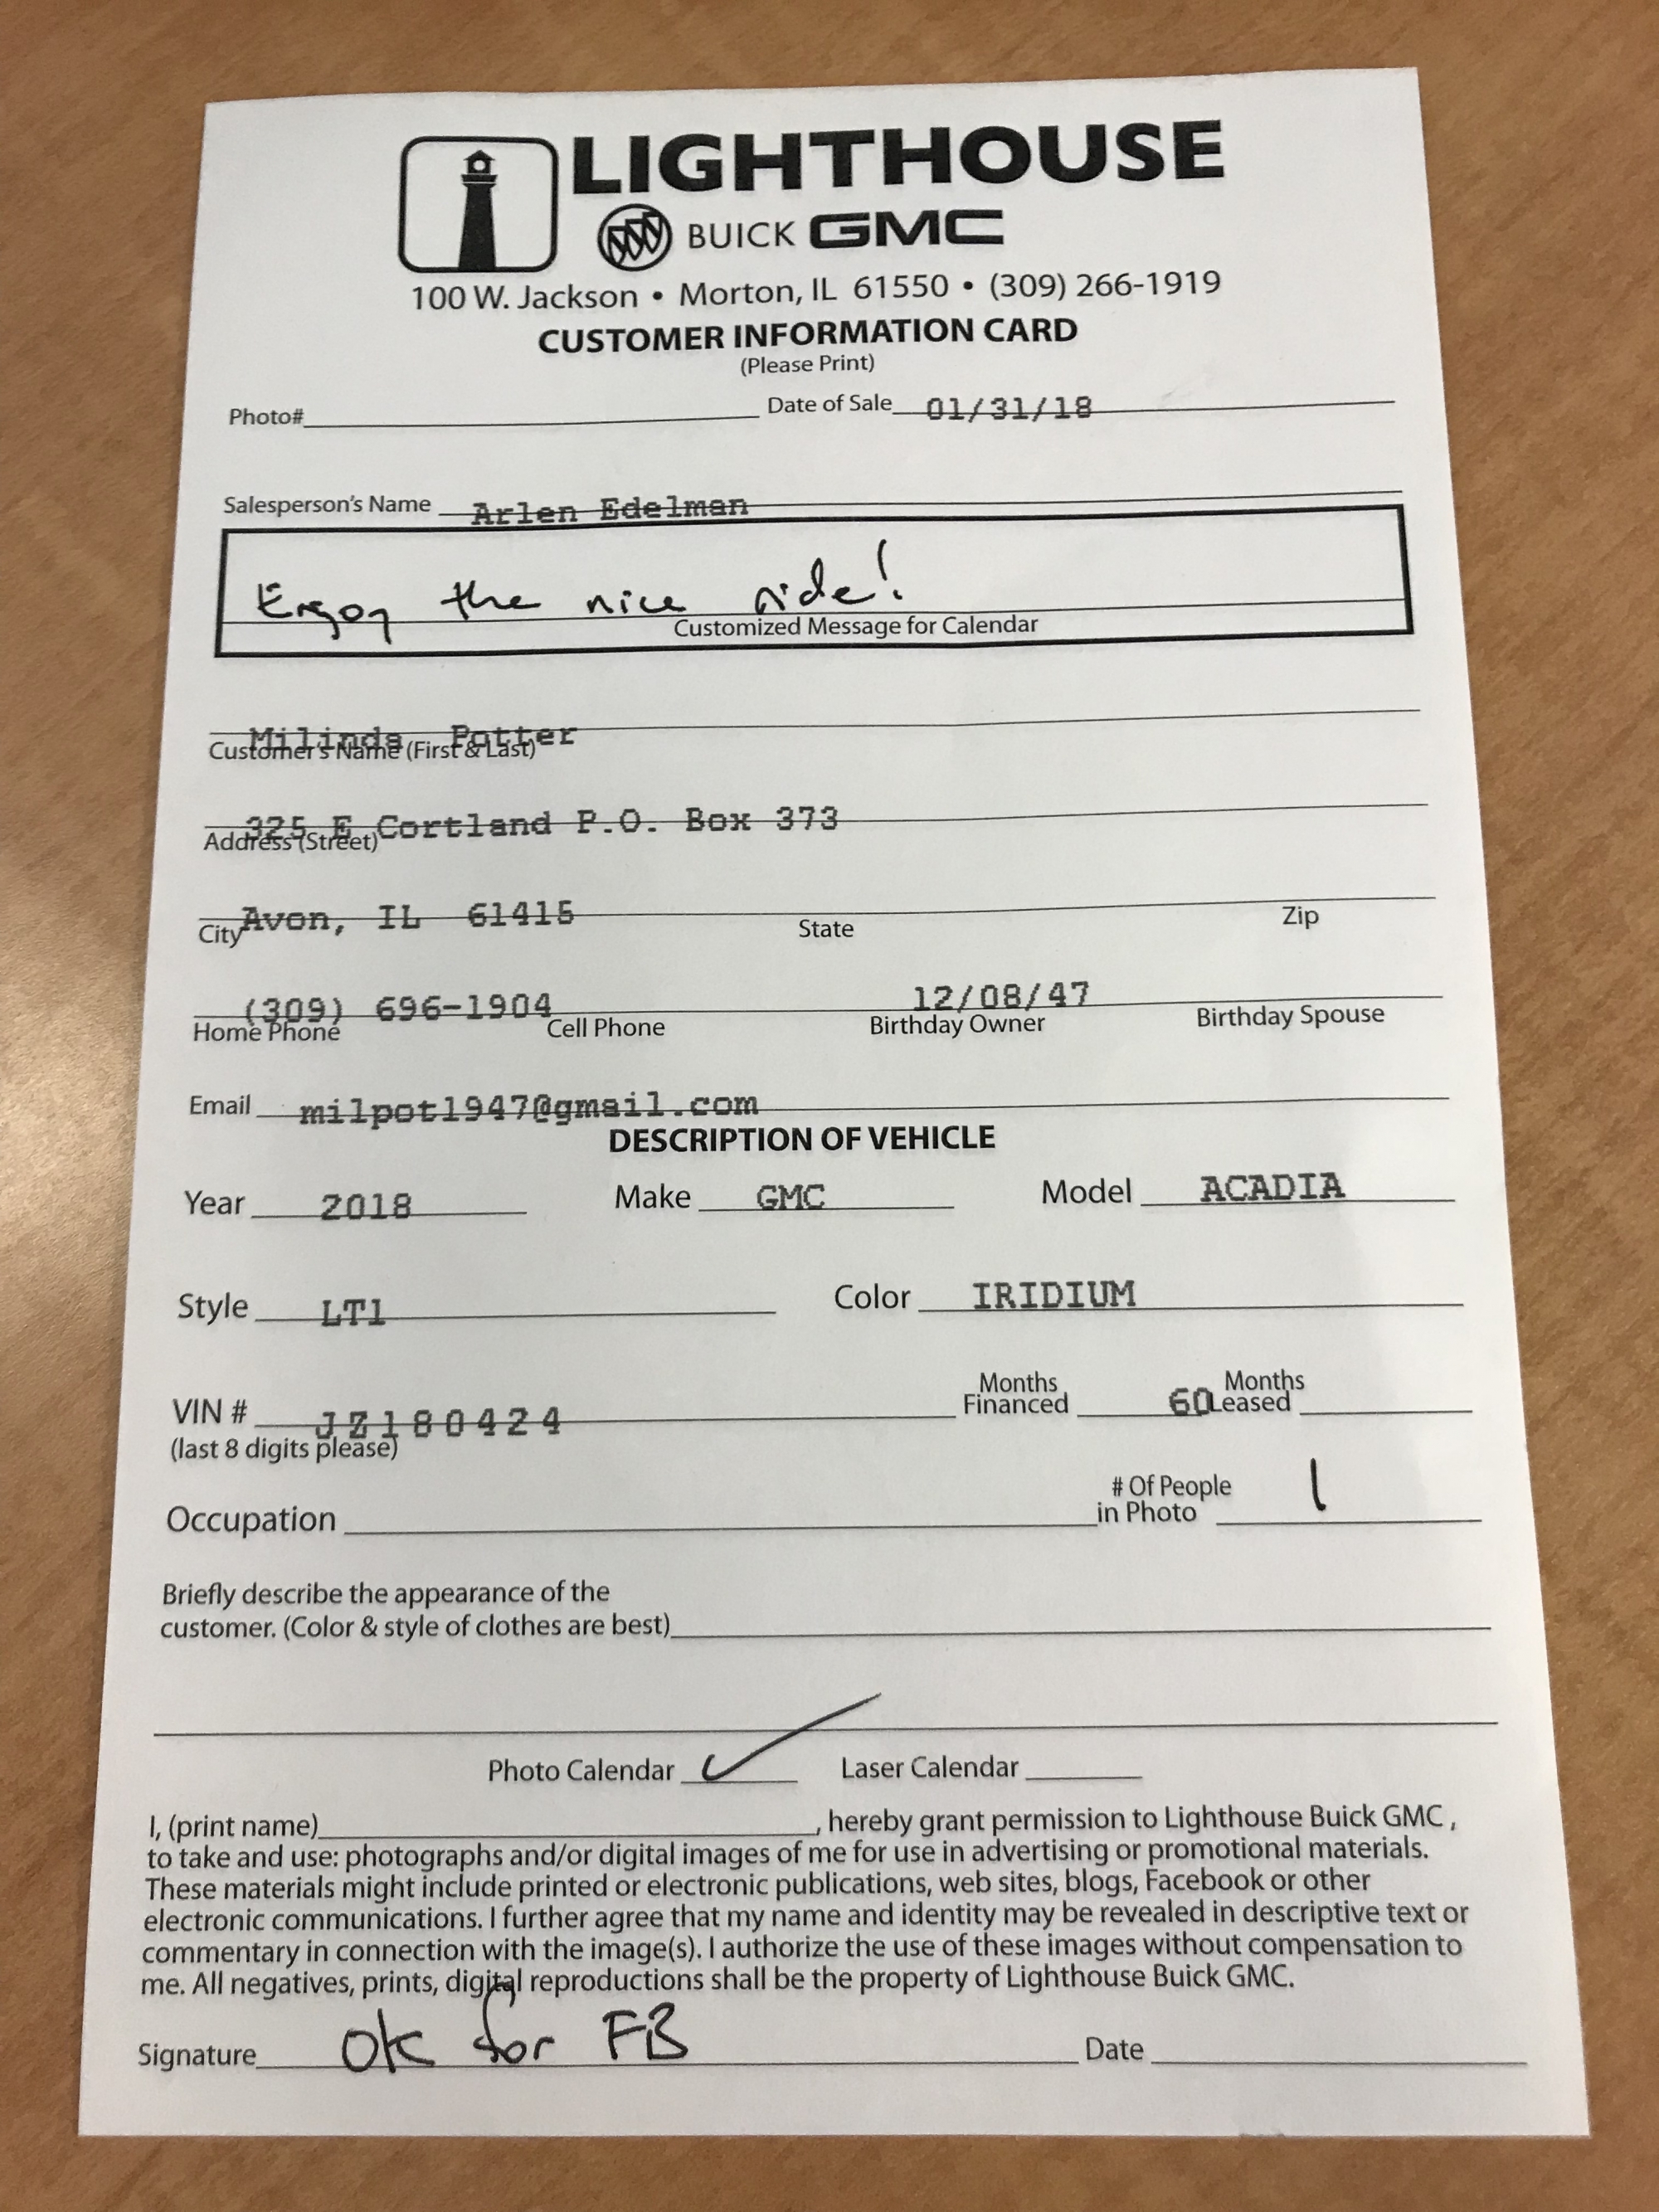 LIGHTHOUSE
BUICK GMC
100 W. Jackson • Morton, IL 61550 • (309) 266-1919
CUSTOMER INFORMATION CARD
(Please Print)
Photo# Date of Sale 01/31/18
Salesperson's Name Arlen Edelman
Enjoy the nice ride!
Customized Message for Calendar
Milinda Potter
Customer's Name (First & Last)
325 E Cortland P.O. Box 373
Address (Street)
Avon, IL 61415
City State Zip
(309) 696-1904 12/08/47
Home Phone Cell Phone Birthday Owner Birthday Spouse
Email milpot1947@gmail.com
DESCRIPTION OF VEHICLE
Year 2018 Make GMC Model ACADIA
Style LT1 Color IRIDIUM
VIN # JZ180424 Months Financed 60 Months Leased
(last 8 digits please)
Occupation # Of People in Photo 1
Briefly describe the appearance of the
customer. (Color & style of clothes are best)
Photo Calendar ✓ Laser Calendar
I, (print name) , hereby grant permission to Lighthouse Buick GMC ,
to take and use: photographs and/or digital images of me for use in advertising or promotional materials.
These materials might include printed or electronic publications, web sites, blogs, Facebook or other
electronic communications. I further agree that my name and identity may be revealed in descriptive text or
commentary in connection with the image(s). I authorize the use of these images without compensation to
me. All negatives, prints, digital reproductions shall be the property of Lighthouse Buick GMC.
Signature OK for FB Date